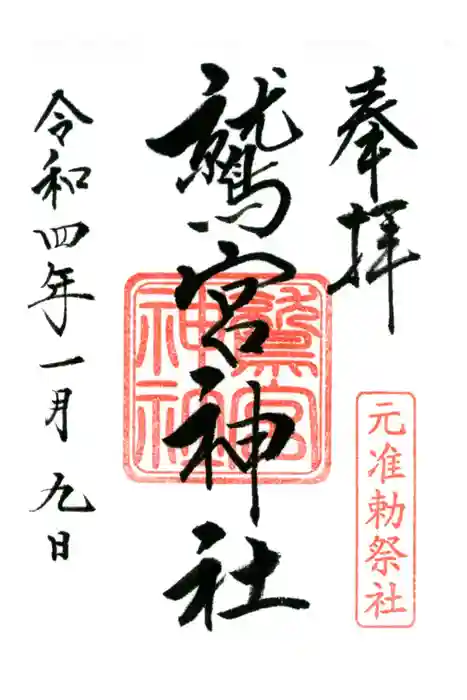 奉拝
元准勅祭社
鷲宮神社
鷲宮神社
令和四年一月九日